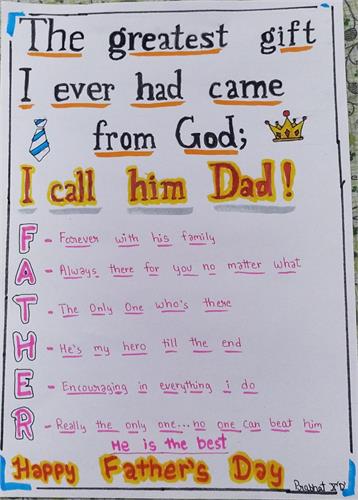 The greatest gift
I ever had came
from God;
I call him Dad!
F - Forever with his family
A - Always there for you no matter what
T - The Only One who's there
H - He's my hero till the end
E - Encouraging in everything i do
R - Really the only one... no one can beat him
He is the best
Happy Father's Day
Prabhat